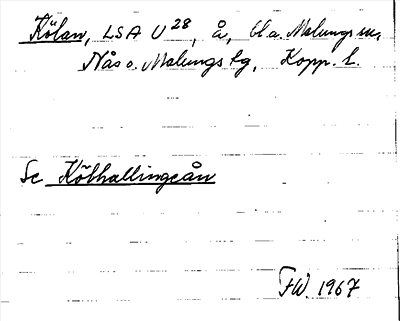 Kölan, LSA U28, å, bl.a. Malungs sn,
Nås o. Malungs tg, Kopp. l.
Se Kölhallingeån
FW. 1967